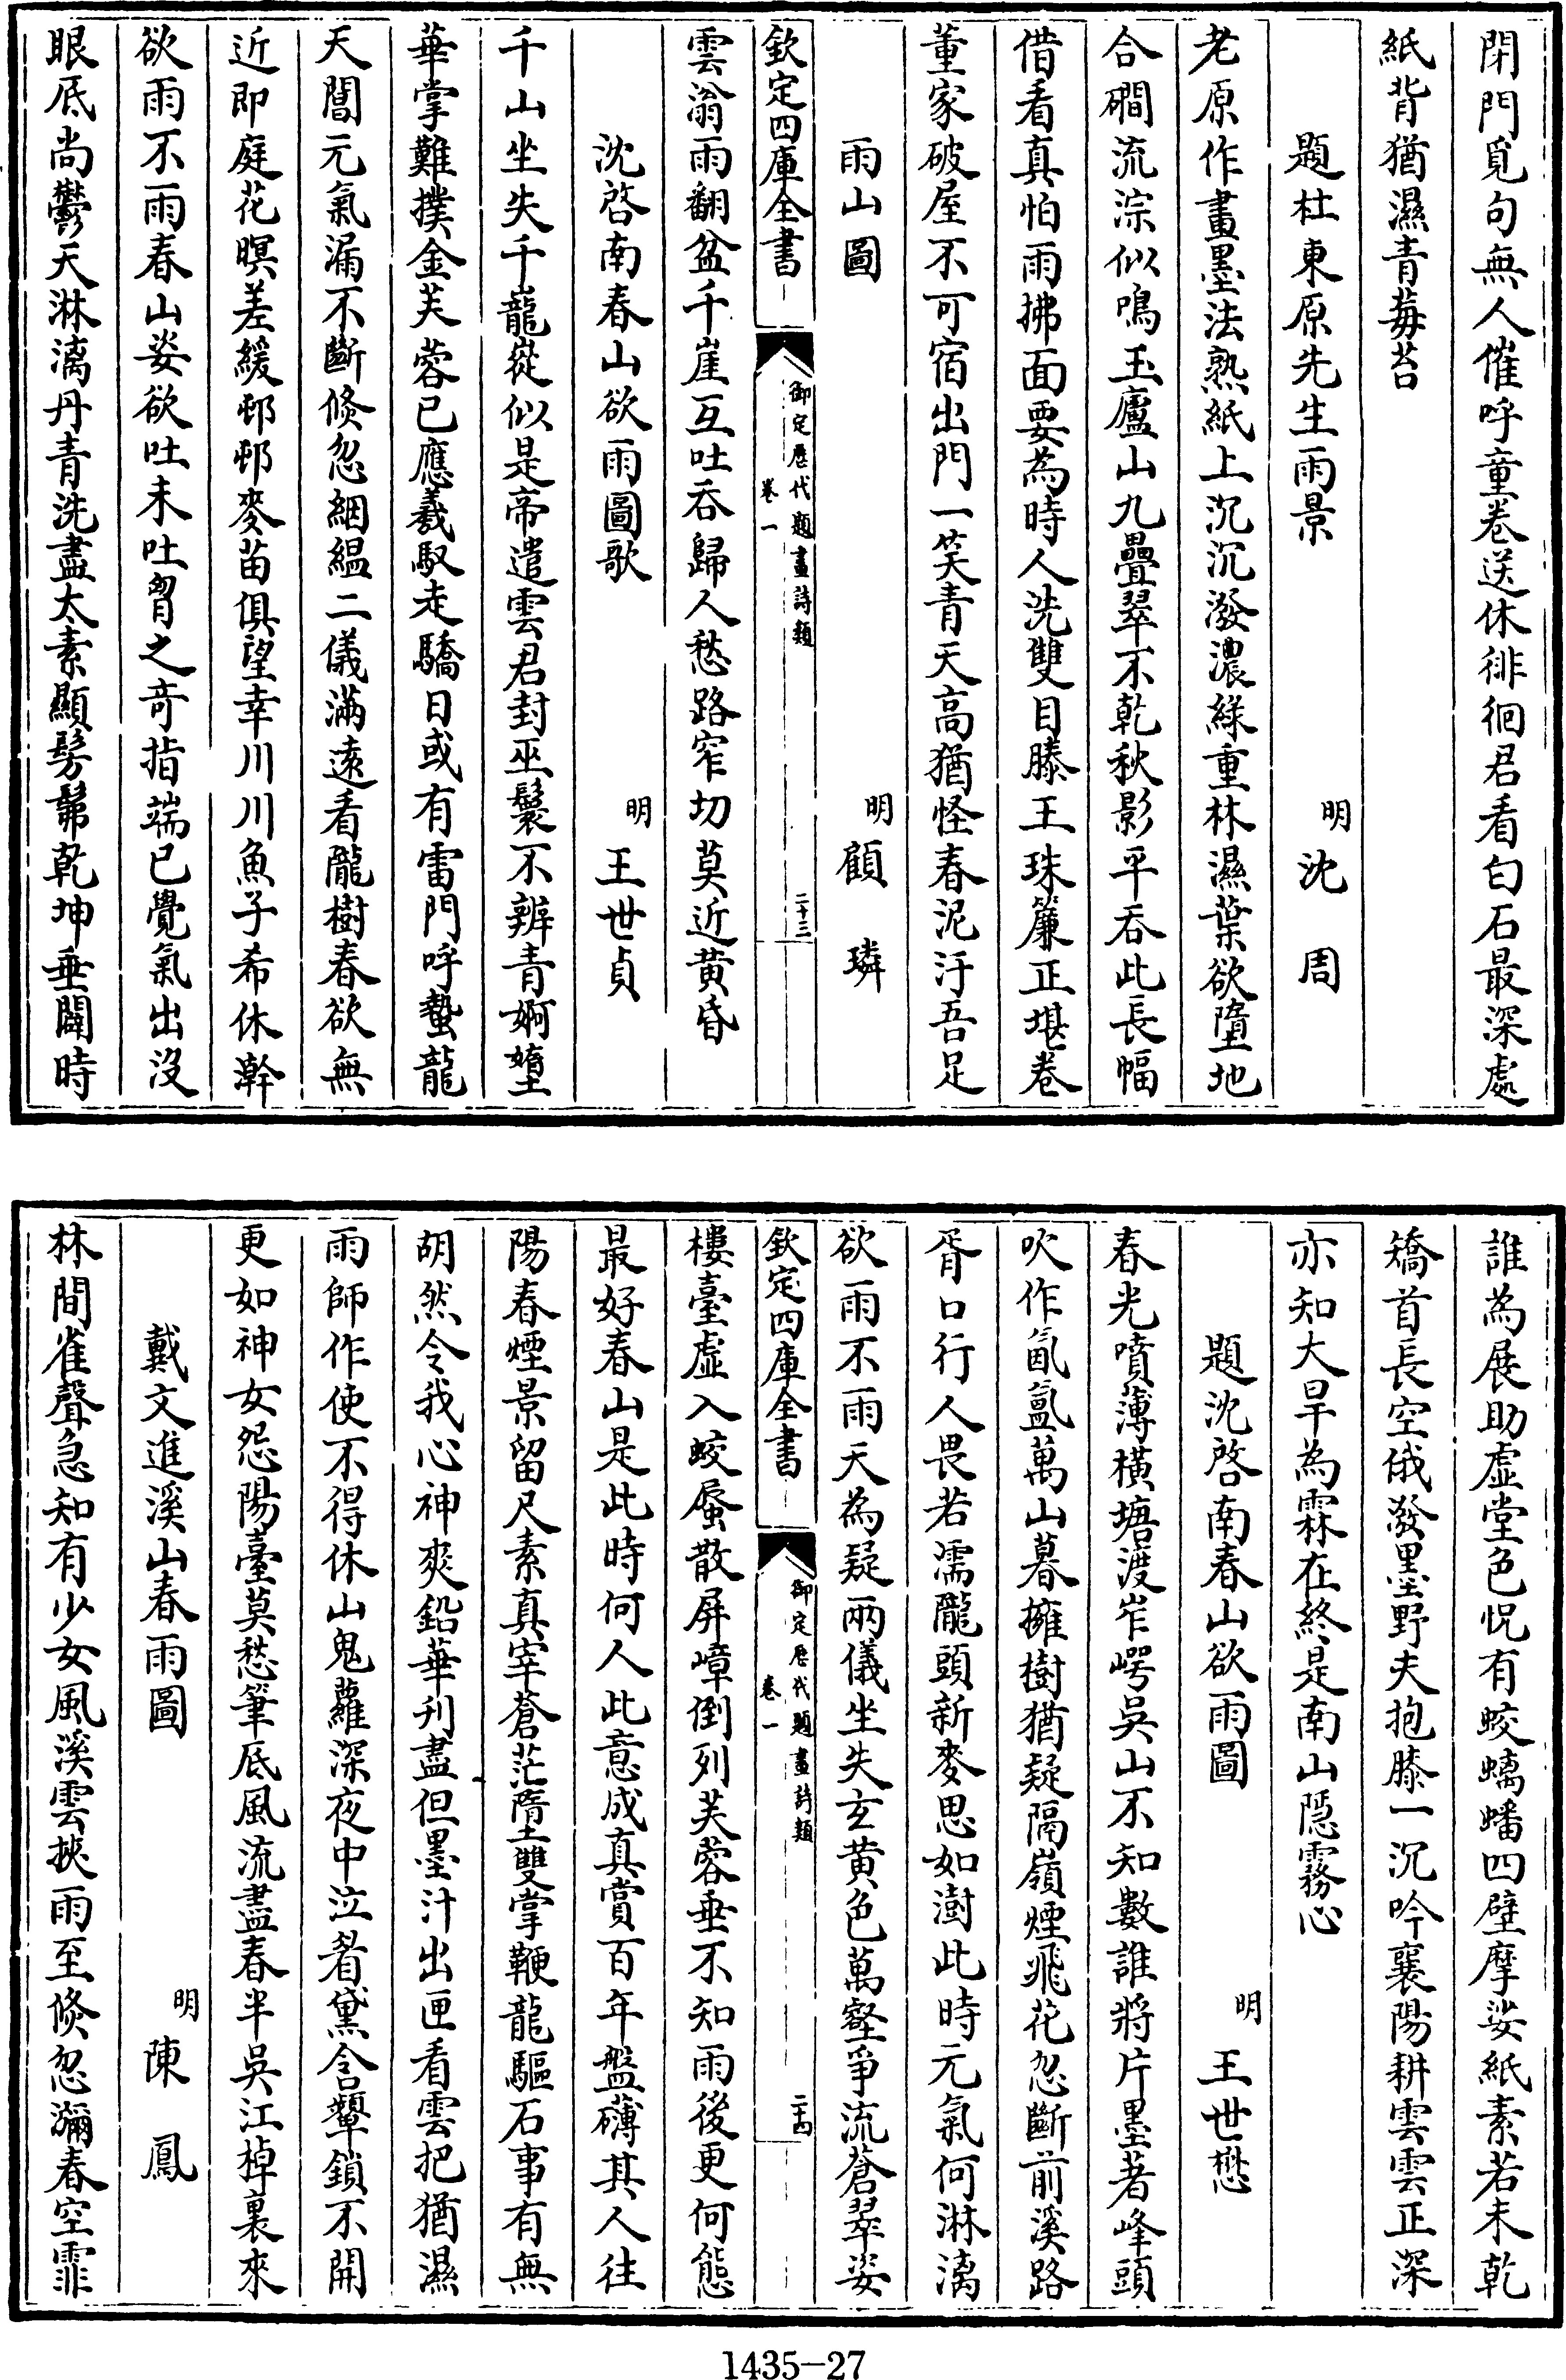 閉門覓句無人催呼童卷送休徘徊君看白石最深處
紙背猶濕青莓苔
題杜東原先生雨景 明 沈周
老原作畫墨法熟紙上沉沉潑濃綠重林濕葉欲墮地
合磵流淙似鳴玉廬山九疊翠不乾秋影平吞此長幅
借看真怕雨拂面要為時人洗雙目滕王珠簾正堪卷
董家破屋不可宿出門一笑青天高猶怪春泥汙吾足
雨山圖 明 顧璘
欽定四庫全書 御定歷代題畫詩類 卷一 二十三
雲滃雨翻盆千崖互吐吞歸人愁路窄切莫近黃昏
沈啓南春山欲雨圖歌 明 王世貞
千山坐失千巃嵸似是帝遣雲君封巫鬟不辨青婀墮
華掌難撲金芙蓉已應羲馭走驕日或有雷門呼蟄龍
天閶元氣漏不斷倐忽絪縕二儀滿遠看隴樹春欲無
近即庭花暝差緩邨邨麥苗俱望幸川川魚子希休澣
欲雨不雨春山姿欲吐未吐胷之奇指端已覺氣出沒
眼底尚鬱天淋漓丹青洗盡太素顯髣髴乾坤垂闢時
誰為展助虛堂色怳有蛟螭蟠四壁摩娑紙素若未乾
矯首長空俄潑墨野夫抱膝一沉吟襄陽耕雲雲正深
亦知大旱為霖在終是南山隱霧心
題沈啓南春山欲雨圖 明 王世懋
春光噴薄橫塘渡岞崿吳山不知數誰將片墨著峰頭
吹作氤氳萬山暮擁樹猶疑隔嶺煙飛花忽斷前溪路
胥口行人畏若濡隴頭新麥思如澍此時元氣何淋漓
欲雨不雨天為疑兩儀坐失玄黃色萬壑爭流蒼翠姿
欽定四庫全書 御定歷代題畫詩類 卷一 二十四
樓臺虛入蛟蜃散屏嶂倒列芙蓉垂不知雨後更何態
最好春山是此時何人此意成真賞百年盤礴其人往
陽春煙景留尺素真宰蒼茫墮雙掌鞭龍驅石事有無
胡然令我心神爽鉛華刊盡但墨汁出匣看雲把猶濕
雨師作使不得休山鬼蘿深夜中泣看黛含顰鎖不開
更如神女怨陽臺莫愁筆底風流盡春半吳江棹裏來
戴文進溪山春雨圖 明 陳鳳
林間雀聲急知有少女風溪雲挾雨至倐忽瀰春空霏
1435-27